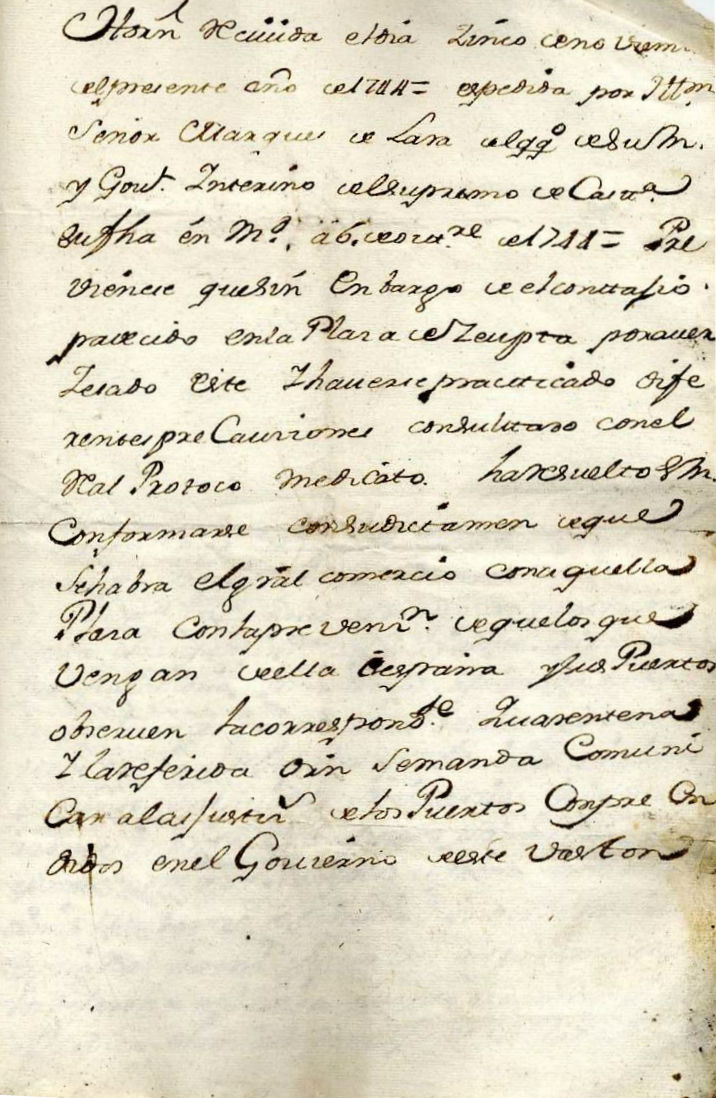 Otra orñ Recivida el dia Zinco de noviem
del presente año de 1744 = espedida por Illm
Señor Marques de Lara del qqo de su M.
y Govr. Interino del supremo de Casta
su fha en Md. a 6. de =  Pre
viniendo que sin Enbargo de el contasio
padecido en la Plaza de Zeupta por aver
Zesado este Y haverse practicado dife
rentes preCauziones consultado con el
Real Protoco medicato. ha Resuelto S M.
Conformarse con su dictamen de que
Se habra el gral comercio con aquella
Plaza Con la prevenzn. de que los que
Vengan de ella à españa y sus Puertos
observen la correspondte Quarentena
Y la referida orñ Se manda Comuni
Car a las Justizs de los Puertos Conpre En
didos en el Govierno de este Vaston